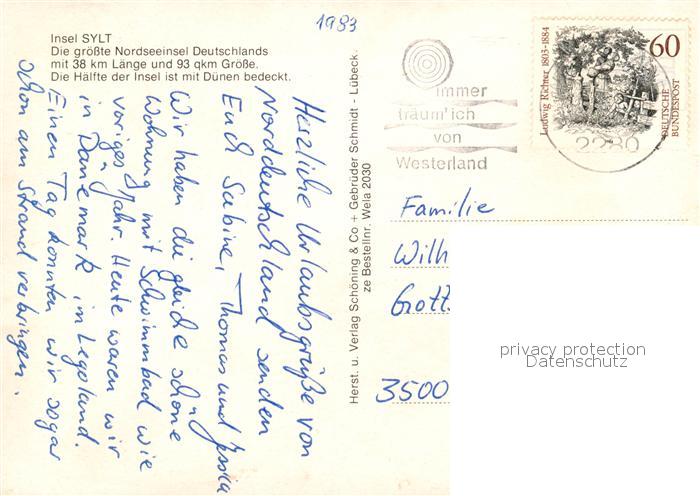 1983
Insel SYLT
Die größte Nordseeinsel Deutschlands
mit 38 km Länge und 93 qkm Größe.
Die Hälfte der Insel ist mit Dünen bedeckt.
Herzliche Urlaubsgrüße von
Norddeutschland senden
Euch Sabine, Thomas und Jessica
Wir haben die gleiche schöne
Wohnung mit Schwimmbad wie
voriges Jahr. Heute waren wir
in Dänemark, im Legoland.
Einen Tag konnten wir sogar
schon am Strand verbringen.
Herst. u. Verlag Schöning & Co + Gebrüder Schmidt - Lübeck.
ze Bestellnr. Wela 2030
immer
träum' ich
von
Westerland
2280
Ludwig Richter 1803-1884
60
DEUTSCHE
BUNDESPOST
Familie
Wilh
Grott
3500
privacy protection
Datenschutz